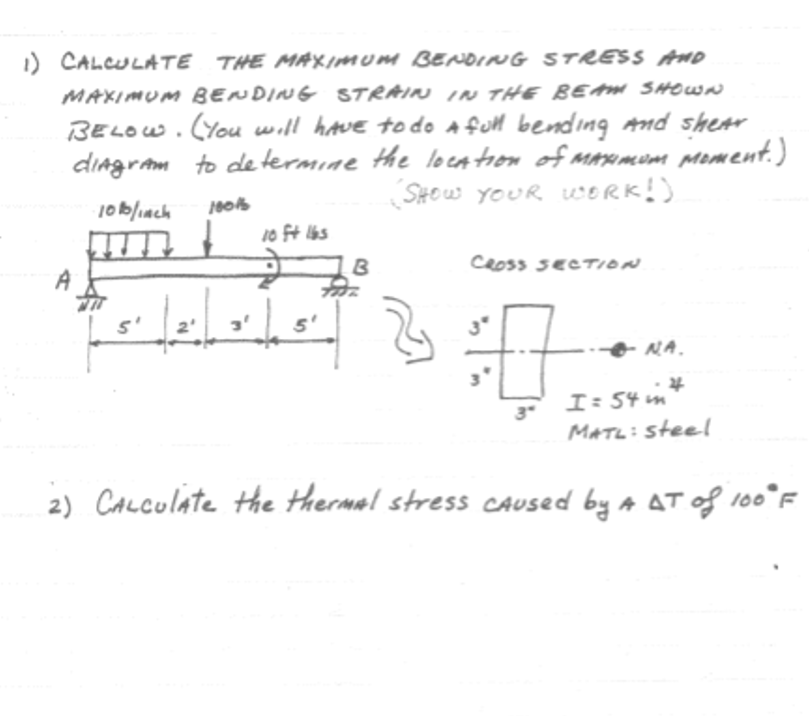 1) CALCULATE THE MAXIMUM BENDING STRESS AND
MAXIMUM BENDING STRAIN IN THE BEAM SHOWN
BELOW. (You will have to do a full bending and shear
diagram to determine the location of maximum moment.)
(SHOW YOUR WORK!)
10 lb/inch
100 lb
10 ft lbs
A
B
5'
2'
3'
5'
CROSS SECTION
3"
3"
3"
N.A.
I = 54 in⁴
MATL: steel
2) Calculate the thermal stress caused by a ΔT of 100°F